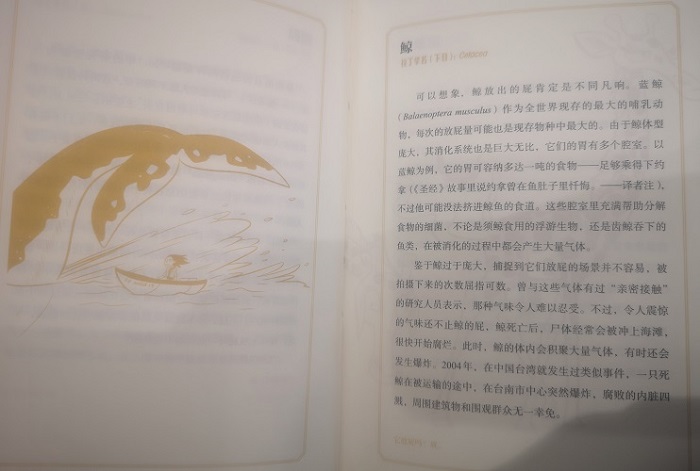 鲸
可以想象，鲸放出的屁肯定是不同凡响。蓝鲸
（Balaenoptera musculus）作为全世界现存的最大的哺乳动
物，每次的放屁量可能也是现存物种中最大的。由于鲸体型
庞大，其消化系统也是巨大无比，它们的胃有多个腔室。以
蓝鲸为例，它的胃可容纳多达一吨的食物——足够乘得下约
拿（《圣经》故事里说约拿曾在鱼肚子里忏悔。——译者注），
不过他可能没法挤进鲸鱼的食道。这些腔室里充满帮助分解
食物的细菌，不论是须鲸食用的浮游生物，还是齿鲸吞下的
鱼类，在被消化的过程中都会产生大量气体。
鉴于鲸过于庞大，捕捉到它们放屁的场景并不容易，被
拍摄下来的次数屈指可数。曾与这些气体有过“亲密接触”
的研究人员表示，那种气味令人难以忍受。不过，令人震惊
的气味还不止鲸的屁，鲸死亡后，尸体经常会被冲上海滩，
很快开始腐烂。此时，鲸的体内会积聚大量气体，有时还会
发生爆炸。2004年，在中国台湾就发生过类似事件，一只死
鲸在被运输的途中，在台南市中心突然爆炸，腐败的内脏四
溅，周围建筑物和围观群众无一幸免。